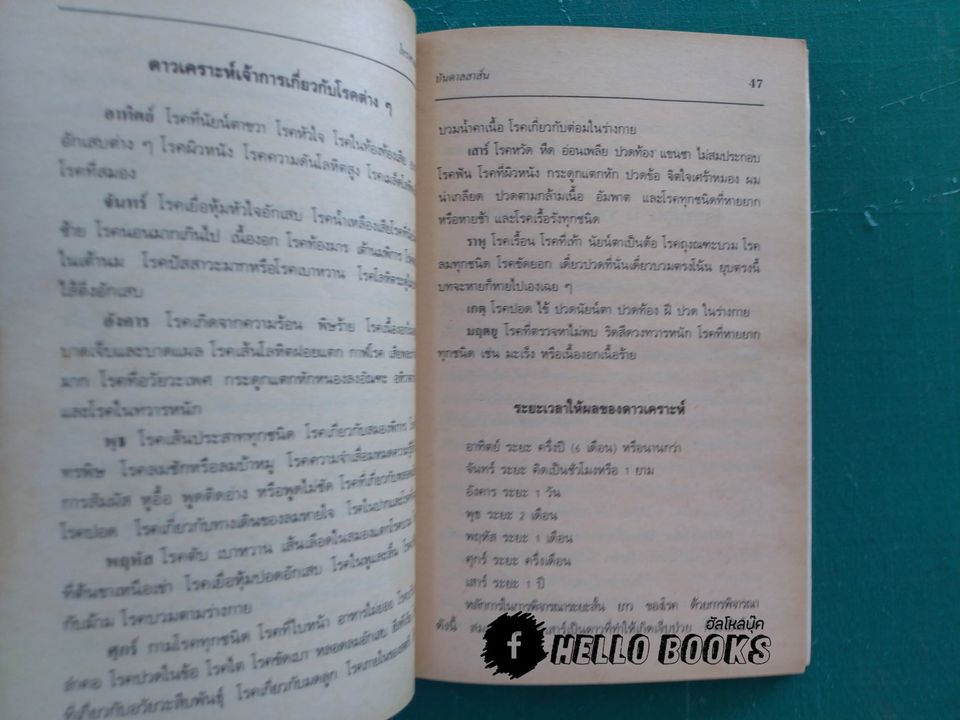 ดาวเคราะห์เจ้าการเกี่ยวกับโรคต่าง ๆ
อาทิตย์ โรคที่นัยน์ตาขวา โรคหัวใจ โรคในท้องท้องเสีย
อักเสบต่าง ๆ โรคผิวหนัง โรคความดันโลหิตสูง โรคเมล็ดโลหิต
โรคที่สมอง
จันทร์ โรคเยื่อหุ้มหัวใจอักเสบ โรคน้ำเหลืองเสีย
ซ้าย โรคนอนมากเกินไป เนื้องอก โรคท้องมาร เต้านมพิการ
ในเต้านม โรคปัสสาวะมากหรือโรคเบาหวาน โรคโลหิตระดู
ไส้ติ่งอักเสบ
อังคาร โรคเกิดจากความร้อน พิษร้าย โรคเนื้องอก
บาดเจ็บและบาดแผล โรคเส้นโลหิตฝอยแตก กาฬโรค
มาก โรคที่อวัยวะเพศ กระดูกแตกหักหนองลงอัณฑะ
และโรคในทวารหนัก
พุธ โรคเส้นประสาททุกชนิด โรคเกี่ยวกับสมองพิการ
ทรพิษ โรคลมชักหรือลมบ้าหมู โรคความจำเสื่อมหมดความรู้สึก
การสัมผัส หูอื้อ พูดติดอ่าง หรือพูดไม่ชัด โรคที่เกี่ยวกับ
โรคปอด โรคเกี่ยวกับทางเดินของลมหายใจ โรคในปาก
พฤหัส โรคตับ เบาหวาน เส้นเลือดในสมองแตก
ที่ต้นขาเหนือเข่า โรคเยื่อหุ้มปอดอักเสบ โรคในหูและลิ้น
กับม้าม โรคบวมตามร่างกาย
ศุกร์ กามโรคทุกชนิด โรคที่ใบหน้า อาหารไม่ย่อย
ลำคอ โรคปวดในข้อ โรคไต โรคขัดเบา หลอดลมอักเสบ
ที่เกี่ยวกับอวัยวะสืบพันธุ์ โรคเกี่ยวกับมดลูก โรคภายในของสตรี
บันดาลสาส์น 47
บวมน้ำคาเนื้อ โรคเกี่ยวกับต่อมในร่างกาย
เสาร์ โรคหวัด หืด อ่อนเพลีย ปวดท้อง แขนขา ไม่สมประกอบ
โรคฟัน โรคที่ผิวหนัง กระดูกแตกหัก ปวดข้อ จิตใจเศร้าหมอง ผม
น่าเกลียด ปวดตามกล้ามเนื้อ อัมพาต และโรคทุกชนิดที่หายยาก
หรือหายช้า และโรคเรื้อรังทุกชนิด
ราหู โรคเรื้อน โรคที่เท้า นัยน์ตาเป็นต้อ โรคถุงอัณฑะบวม โรค
ลมทุกชนิด โรคขัดยอก เดี๋ยวปวดที่นั่นเดี๋ยวบวมตรงโน้น ยุบตรงนี้
บทจะหายก็หายไปเองเฉย ๆ
เกตุ โรคปอด ไข้ ปวดนัยน์ตา ปวดท้อง ฝี ปวด ในร่างกาย
มฤตยู โรคที่ตรวจหาไม่พบ ริดสีดวงทวารหนัก โรคที่หายยาก
ทุกชนิด เช่น มะเร็ง หรือเนื้องอกเนื้อร้าย
ระยะเวลาให้ผลของดาวเคราะห์
อาทิตย์ ระยะ ครึ่งปี (๖ เดือน) หรือนานกว่า
จันทร์ ระยะ คิดเป็นชั่วโมงหรือ 1 ยาม
อังคาร ระยะ 1 วัน
พุธ ระยะ 2 เดือน
พฤหัส ระยะ 1 เดือน
ศุกร์ ระยะ ครึ่งเดือน
เสาร์ ระยะ 1 ปี
หลักการในการพิจารณาระยะสั้น ยาว ของโรค ด้วยการพิจารณา
ดังนี้ เสาร์เป็นดาวที่ทำให้เกิดเจ็บป่วย
ฮัลโหลบุ๊ค
f HELLO BOOKS